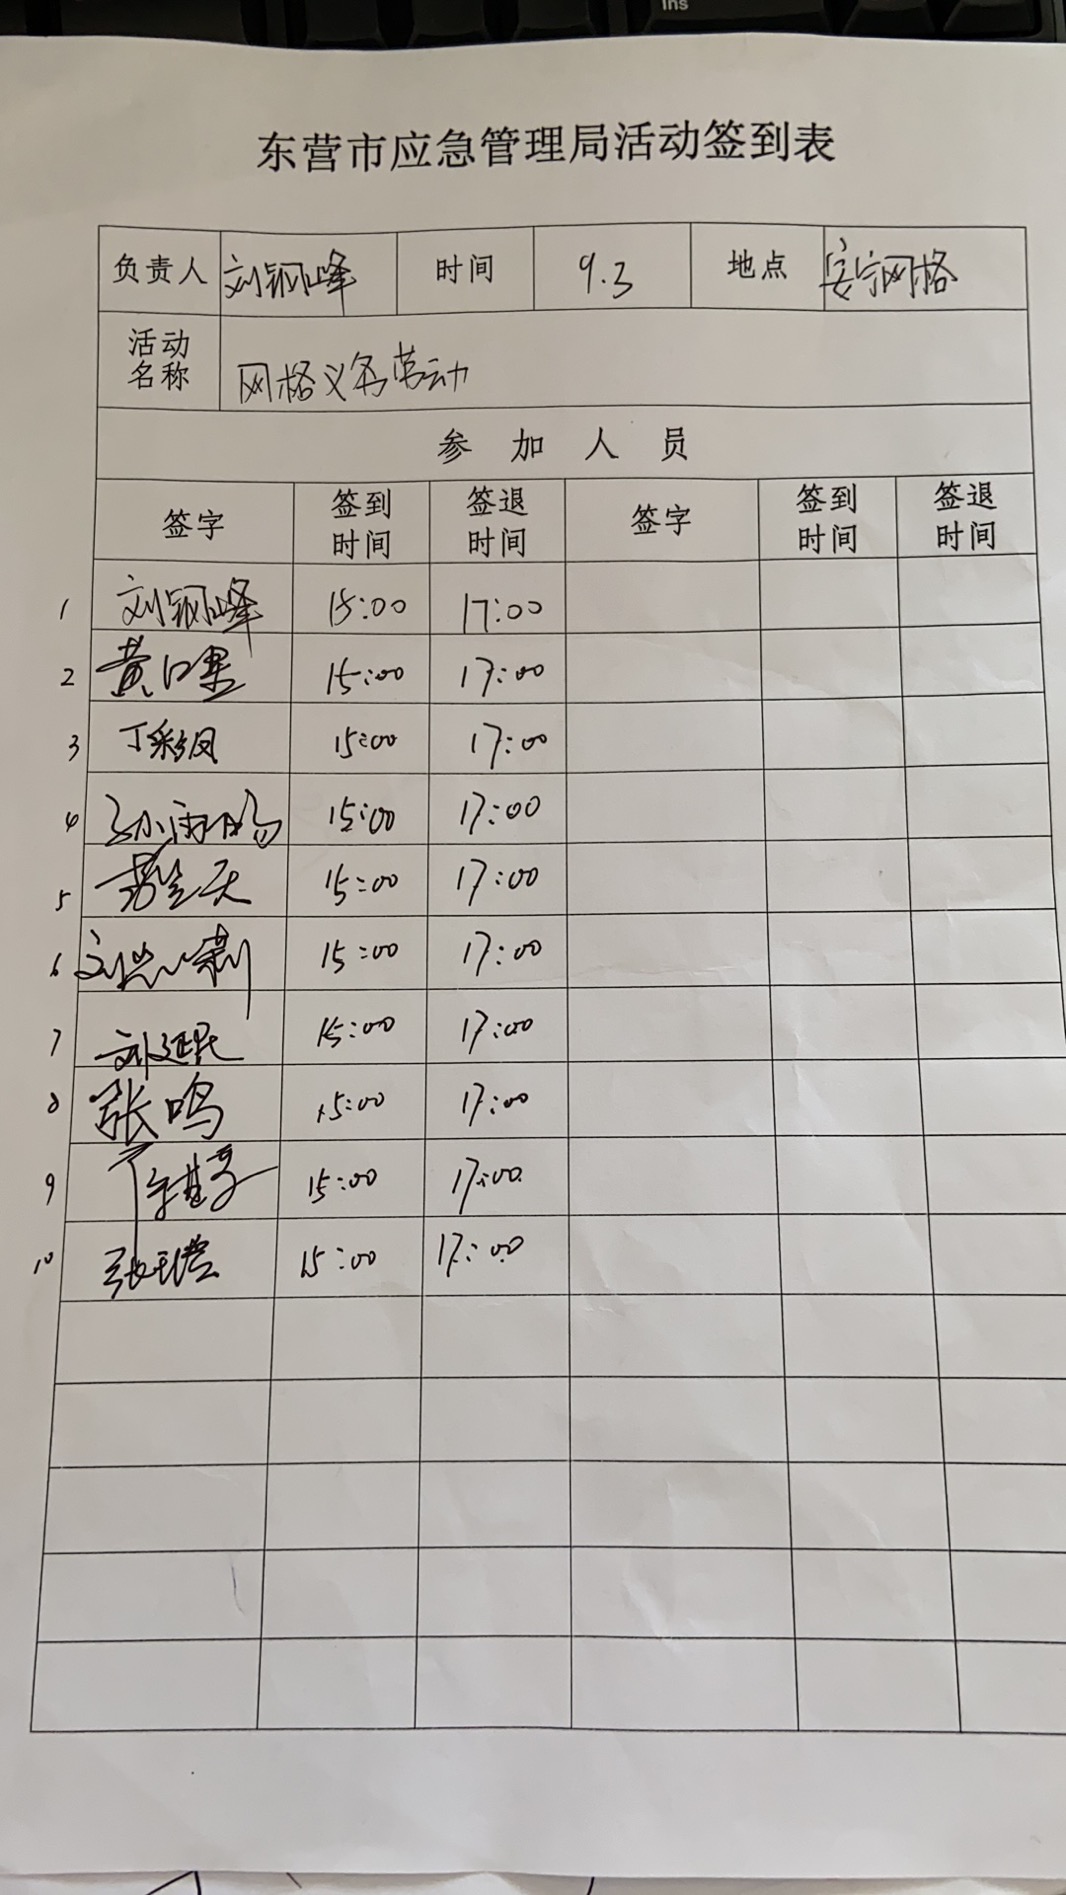 Ins
东营市应急管理局活动签到表
负责人 刘 峰 时间 9.3 地点 安宁网格
活动名称 网格义务劳动
参加人员
签字 签到时间 签退时间 签字 签到时间 签退时间
1 刘 峰 15:00 17:00
2 黄 15:00 17:00
3 丁彩凤 15:00 17:00
4 孙雨鸣 15:00 17:00
5 天 15:00 17:00
6 刘 15:00 17:00
7 刘延民 15:00 17:00
8 张鸣 15:00 17:00
9 15:00 17:00
10 张 15:00 17:00